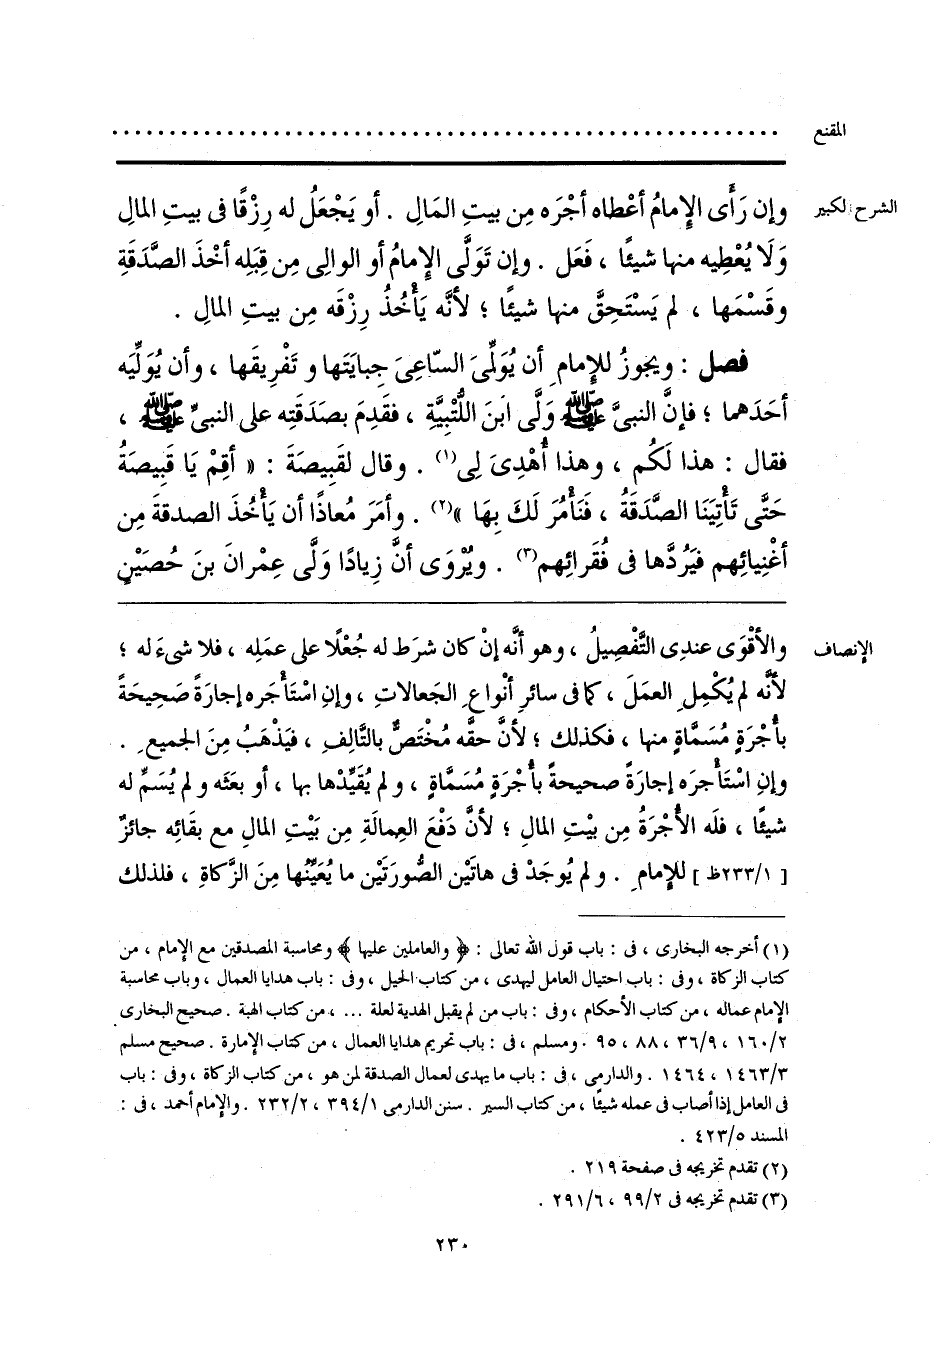 المقنع ............................................................
الشرح الكبير وإن رَأَى الإِمامُ أعْطاه أجْرَه مِن بيتِ المَالِ . أو يَجْعَلُ له رِزْقًا فى بيتِ المالِ
وَلَا يُعْطِيه منها شيئًا ، فَعَل . وإن تَوَلَّى الإِمامُ أو الوالِى مِن قِبَلِه أخْذَ الصَّدَقَةِ
وقَسْمَها ، لم يَسْتَحِقَّ منها شيئًا ؛ لأنَّه يَأْخُذُ رِزْقَه مِن بيتِ المالِ .
فصل : ويجوزُ للإِمامِ أن يُوَلِّىَ السّاعِىَ جِبايَتَها و تَفْرِيقَها ، وأن يُوَلِّيَه
أحَدَهما ؛ فإنَّ النبىَّ ﷺ وَلَّى ابنَ اللُّتْبِيَّةِ ، فقَدِمَ بصَدَقَتِه على النبىِّ ﷺ ،
فقال : هذا لَكُم ، وهذا أُهْدِىَ لِى(١) . وقال لقَبِيصَةَ : « أقِمْ يَا قَبِيصَةُ
حَتَّى تَأْتِيَنَا الصَّدَقَةُ ، فَنَأْمُرَ لَكَ بِهَا »(٢) . وأمَرَ مُعاذًا أن يَأْخُذَ الصدقةَ مِن
أغْنِيائِهم فيَرُدَّها فى فُقَرائِهم(٣) . ويُرْوَى أنَّ زِيادًا وَلَّى عِمْرانَ بنَ حُصَيْنٍ
الإنصاف والأقْوَى عندِى التَّفْصِيلُ ، وهو أنَّه إنْ كان شرَط له جُعْلًا على عمَلِه ، فلا شىءَ له ؛
لأنَّه لم يُكْمِلِ العمَلَ ، كما فى سائرِ أنْواعِ الجَعالاتِ ، وإنِ اسْتَأْجَره إجارَةً صَحِيحَةً
بأُجْرَةٍ مُسَمَّاةٍ منها ، فكذلك ؛ لأنَّ حقَّه مُخْتَصٌّ بالتَّالِفِ ، فيَذْهَبُ مِنَ الجميعِ .
وإنِ اسْتَأْجرَه إجارَةً صحيحةً بأُجْرَةٍ مُسَمَّاةٍ ، ولم يُقَيِّدْها بها ، أو بعَثَه ولم يُسَمِّ له
شيئًا ، فلَه الأُجْرَةُ مِن بيْتِ المالِ ؛ لأنَّ دَفْعَ العِمالَةِ مِن بَيْتِ المالِ مع بقَائِه جائزٌ
[ ٢٣٣/١ظ ] للإمامِ . ولم يُوجَدْ فى هاتَيْن الصُّورَتَيْن ما يُعَيِّنُها مِنَ الزَّكاةِ ، فلذلك
(١) أخرجه البخارى ، فى : باب قول الله تعالى : ﴿ والعاملين عليها ﴾ ومحاسبة المصدقين مع الإمام ، من
كتاب الزكاة ، وفى : باب احتيال العامل ليهدى ، من كتاب الحيل ، وفى : باب هدايا العمال ، وباب محاسبة
الإمام عماله ، من كتاب الأحكام ، وفى : باب من لم يقبل الهدية لعلة ... ، من كتاب الهبة . صحيح البخارى
١٦٠/٢ ، ٣٦/٩ ، ٨٨ ، ٩٥ . ومسلم ، فى : باب تحريم هدايا العمال ، من كتاب الإمارة . صحيح مسلم
١٤٦٣/٣ ، ١٤٦٤ . والدارمى ، فى : باب ما يهدى لعمال الصدقة لمن هو ، من كتاب الزكاة ، وفى : باب
فى العامل إذا أصاب فى عمله شيئًا ، من كتاب السير . سنن الدارمى ٣٩٤/١ ، ٢٣٢/٢ . والإمام أحمد ، فى :
المسند ٤٢٣/٥ .
(٢) تقدم تخريجه فى صفحة ٢١٩ .
(٣) تقدم تخريجه فى ٩٩/٢ ، ٢٩١/٦ .
٢٣٠